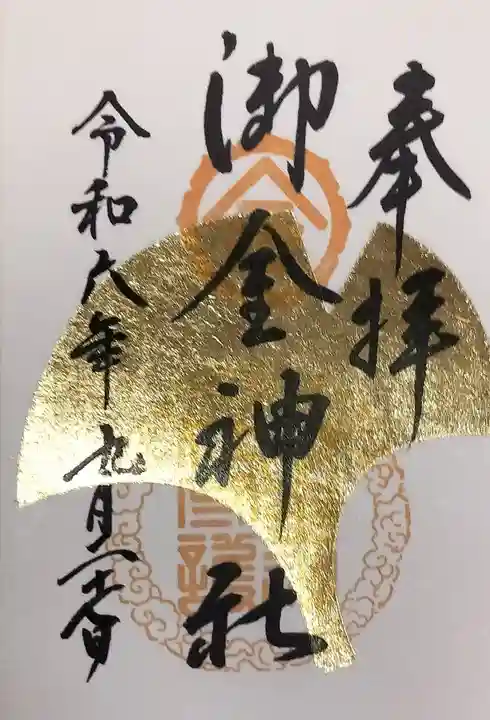 奉拝
御金神社
令和六年九月二十六日